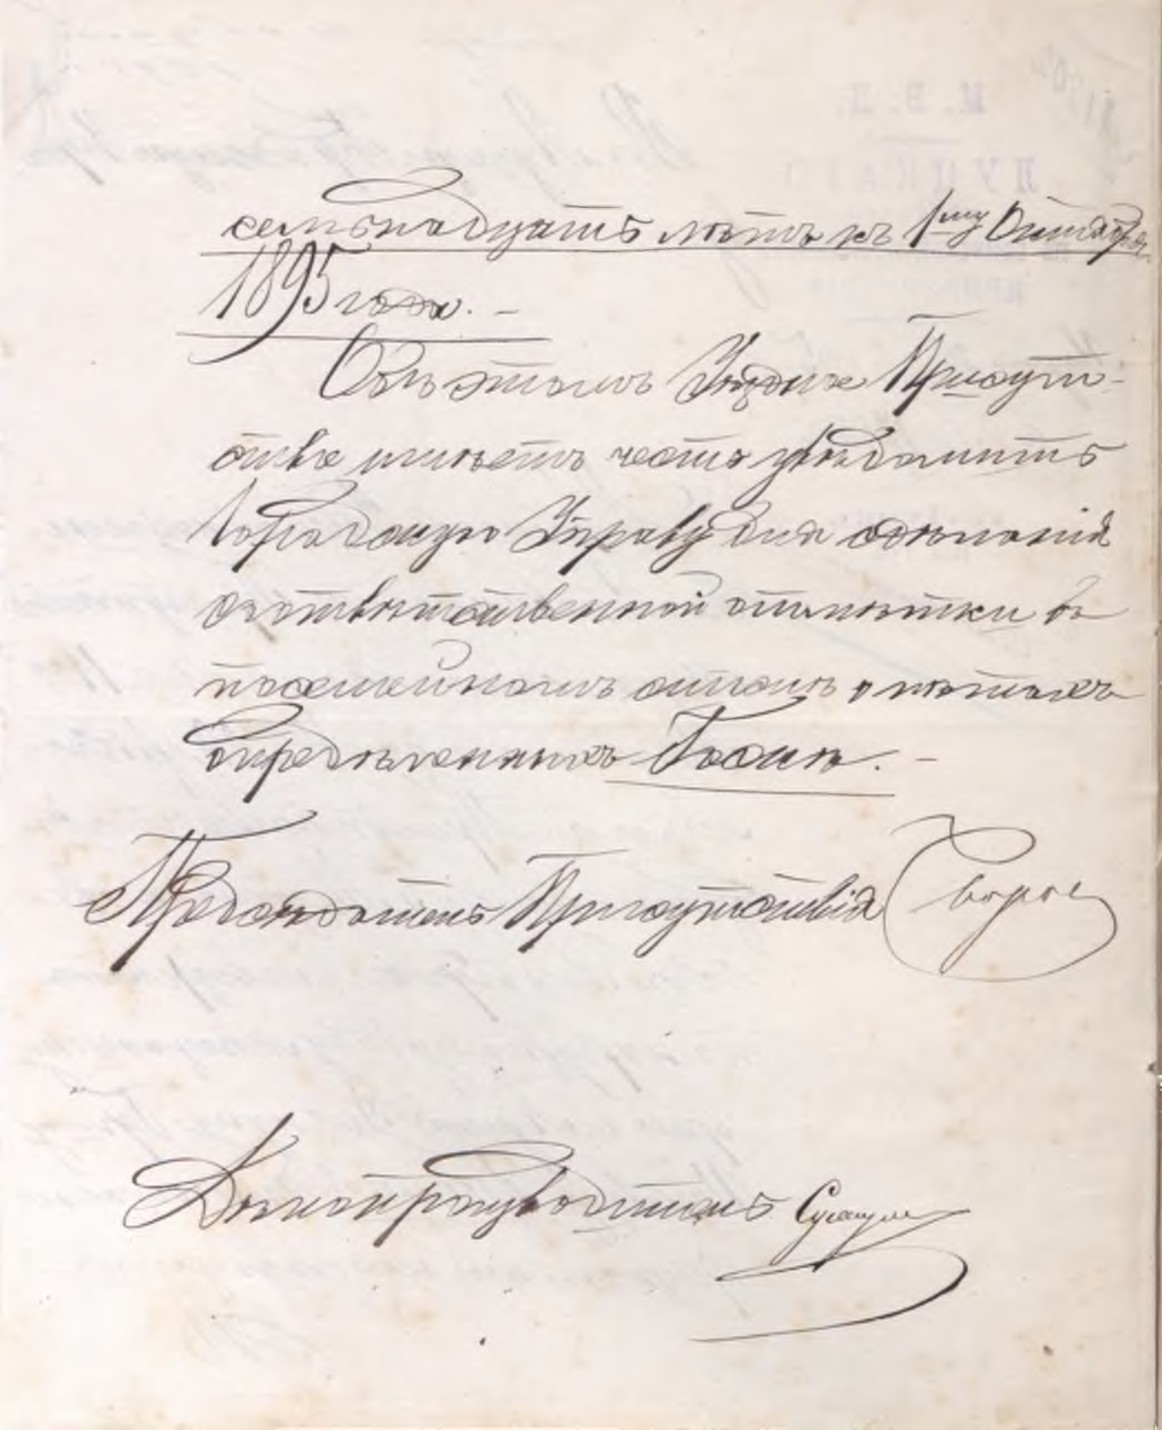 семьнадцать лѣтъ къ 1му Октября
1895 года. -
Объ этомъ Уѣздное Присут-
ствіе имѣетъ честь увѣдомить
Городскую Управу для сдѣланія
соотвѣтственной отмѣтки въ
посемейномъ спискѣ о лѣтахъ
опредѣленныхъ Іосию. -
Предсѣдатель Присутствія
Дѣлопроизводитель